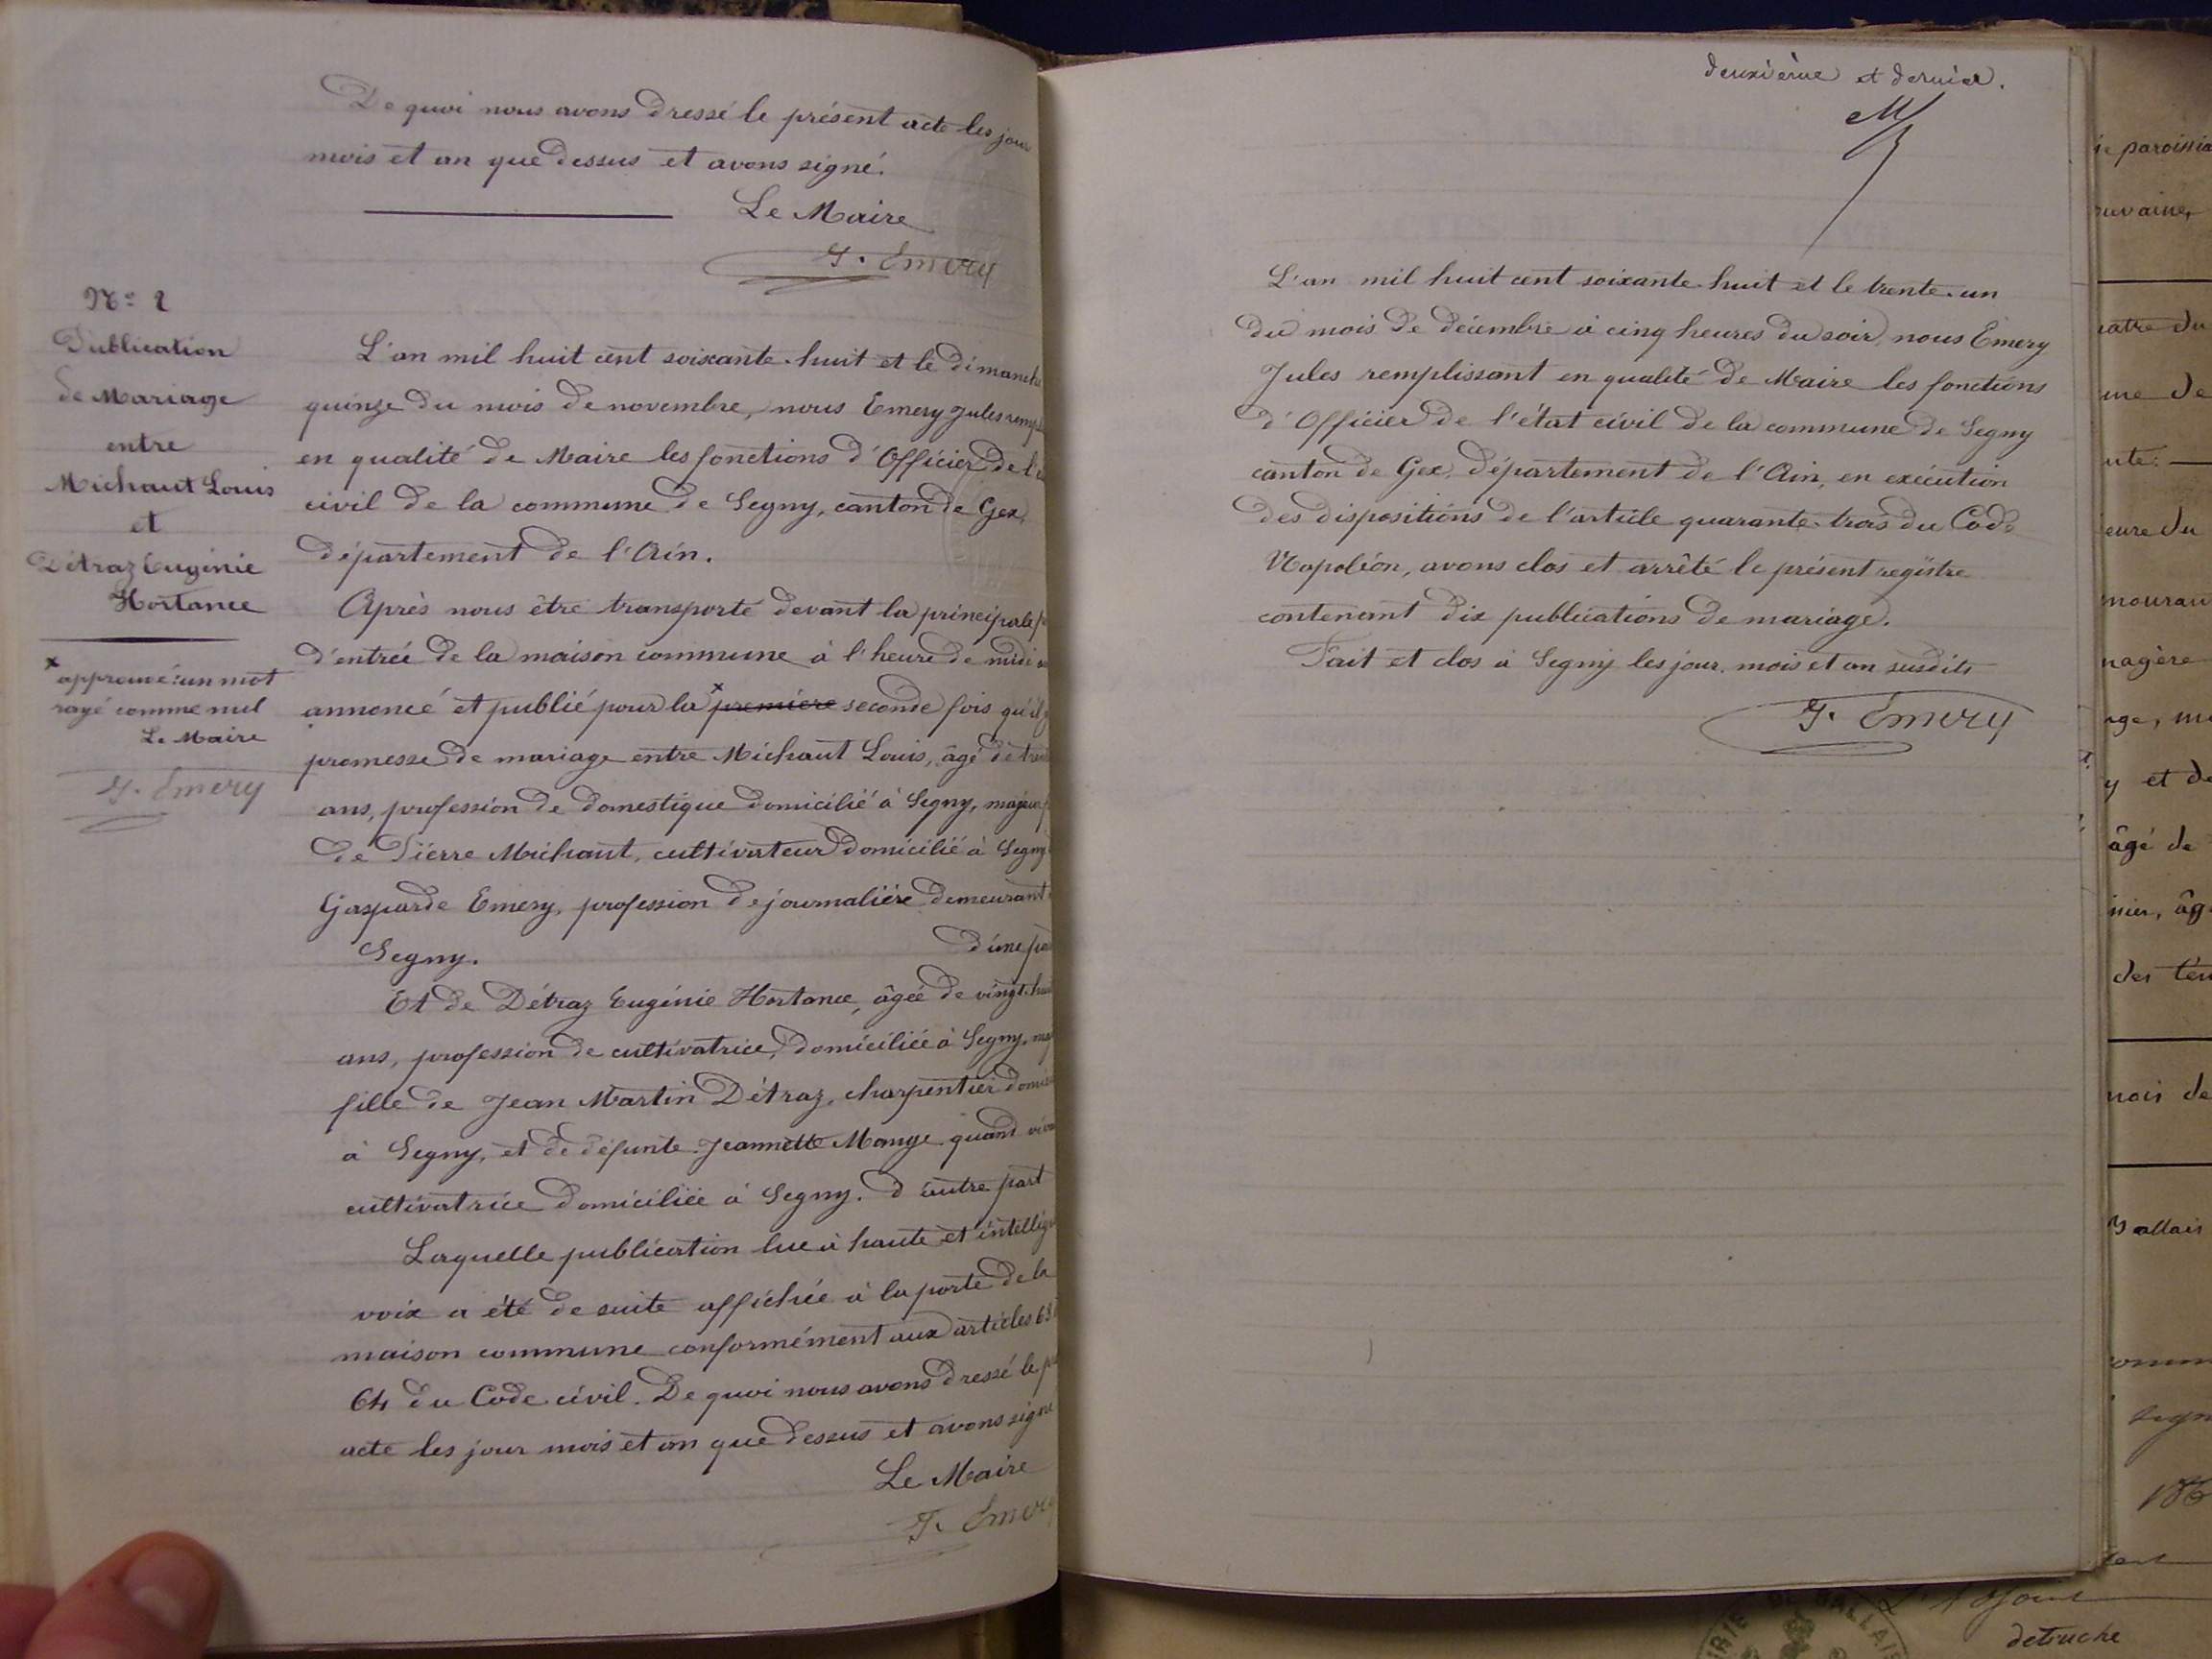 De quoi nous avons dressé le présent acte les jour
mois et an que dessus et avons signé.
Le Maire
J. Emery
Nº 2
Publication
de Mariage
entre
Michaut Louis
et
Détraz Eugénie
Hortance
x approuvé: un mot
rayé comme nul
Le Maire
J. Emery
L'an mil huit cent soixante-huit et le dimanche
quinze du mois de novembre, nous Emery Jules
en qualité de Maire les fonctions d'Officier de
civil de la commune de Segny, canton de Gex,
département de l'Ain.
Après nous être transporté devant la principale
d'entrée de la maison commune à l'heure de midi
annoncé et publié pour la x première seconde fois qu'il
promesse de mariage entre Michaut Louis, âgé de
ans, profession de domestique domicilié à Segny, majeur
de Pierre Michaut, cultivateur domicilié à Segny
Gasparde Emery, profession de journalière demeurant
Segny. d'une
Et de Détraz Eugénie Hortance, âgée de vingt-
ans, profession de cultivatrice, domiciliée à Segny,
fille de Jean Martin Détraz, charpentier
à Segny, et de défunte Jeannette Mange quand
cultivatrice domiciliée à Segny. d'autre part
Laquelle publication lue à haute et
voix a été de suite affichée à la porte de la
maison commune conformément aux articles 63
64 du Code civil. De quoi nous avons dressé le
acte les jour mois et an que dessus et avons signé
Le Maire
J. Emery
deuxième et dernier.
L'an mil huit cent soixante-huit et le trente-un
du mois de décembre à cinq heures du soir, nous Emery
Jules remplissant en qualité de Maire les fonctions
d'Officier de l'état civil de la commune de Segny
canton de Gex, département de l'Ain, en exécution
des dispositions de l'article quarante-trois du Code
Napoléon, avons clos et arrêté le présent registre
contenant dix publications de mariage.
Fait et clos à Segny les jour, mois et an susdits
J. Emery
du
de
eure du
nagère
y et de
âgé de
mois de
détruche